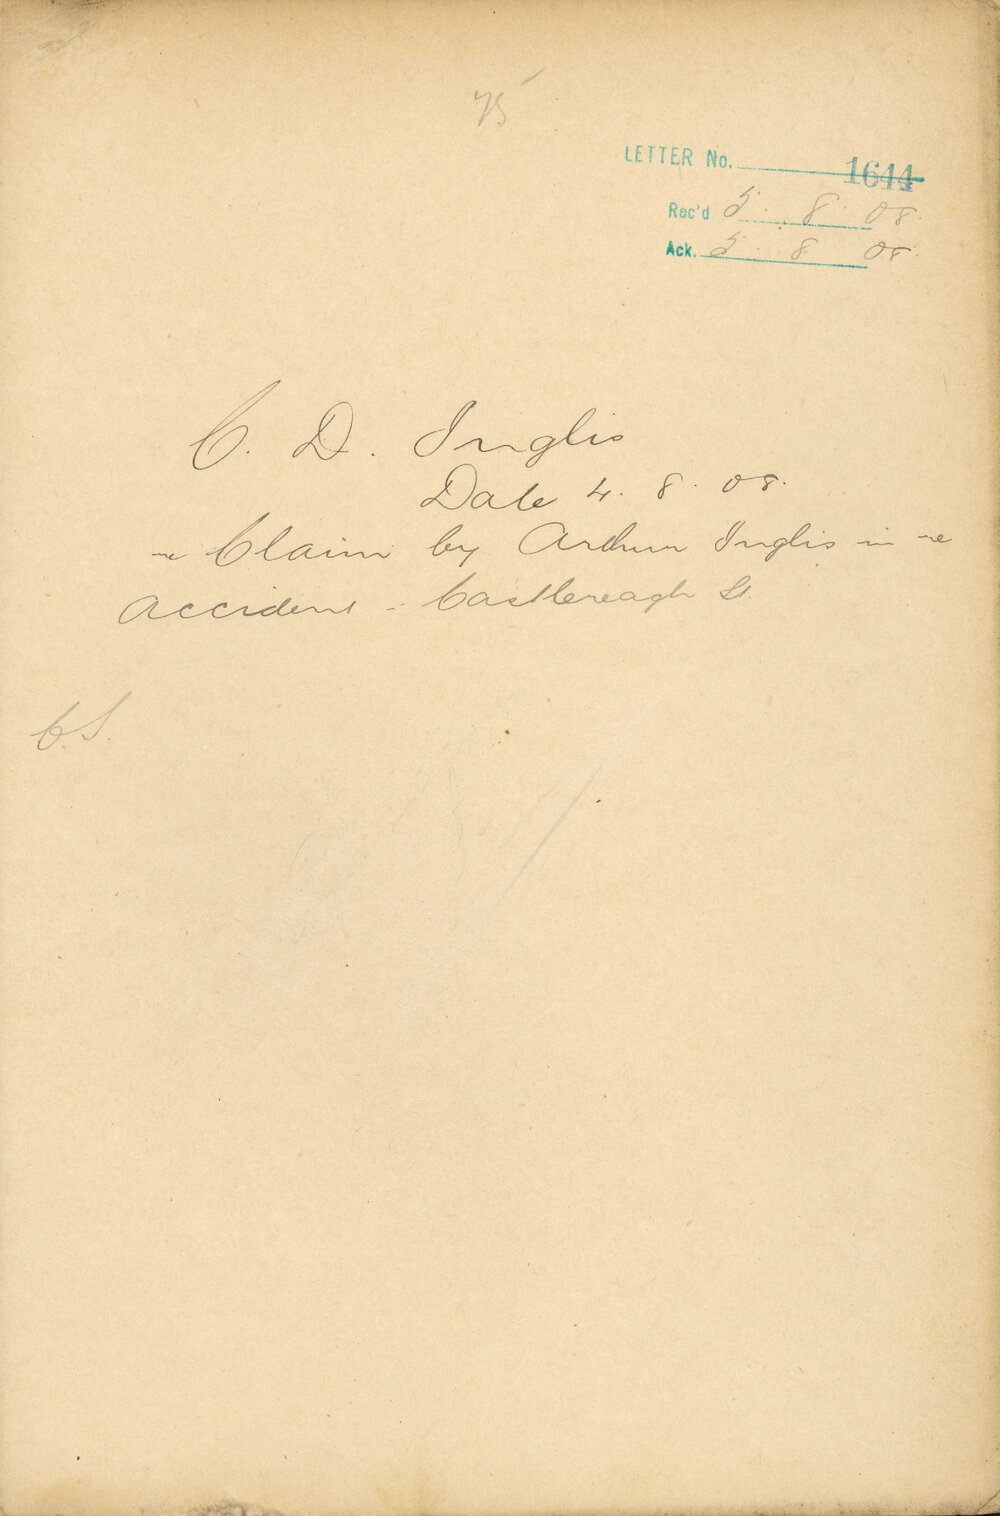 75
LETTER No. 1644
Rec'd 5. 8. 08.
Ack. 5. 8. 08.
C. D. Inglis
Date 4. 8. 08.
re Claim by Arthur Inglis in re
accident - Castlereagh St.
C.S.